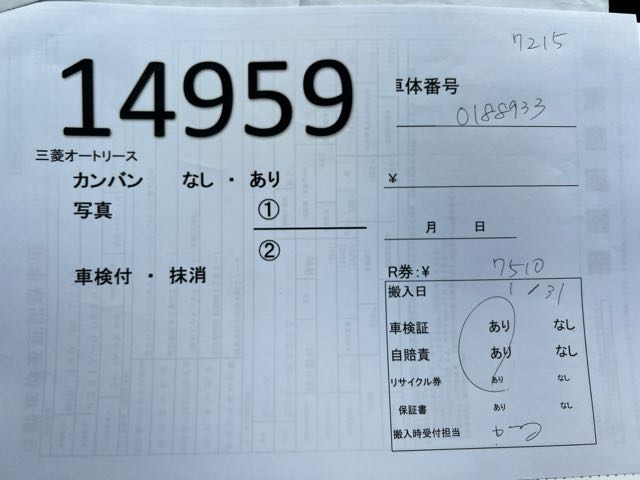 7215
14959
車体番号
0188933
三菱オートリース
カンバン なし ・ あり
¥
写真 ①
月 日
②
車検付 ・ 抹消
R券:¥ 7510
搬入日 1/31
車検証 あり なし
自賠責 あり なし
リサイクル券 あり なし
保証書 あり なし
搬入時受付担当